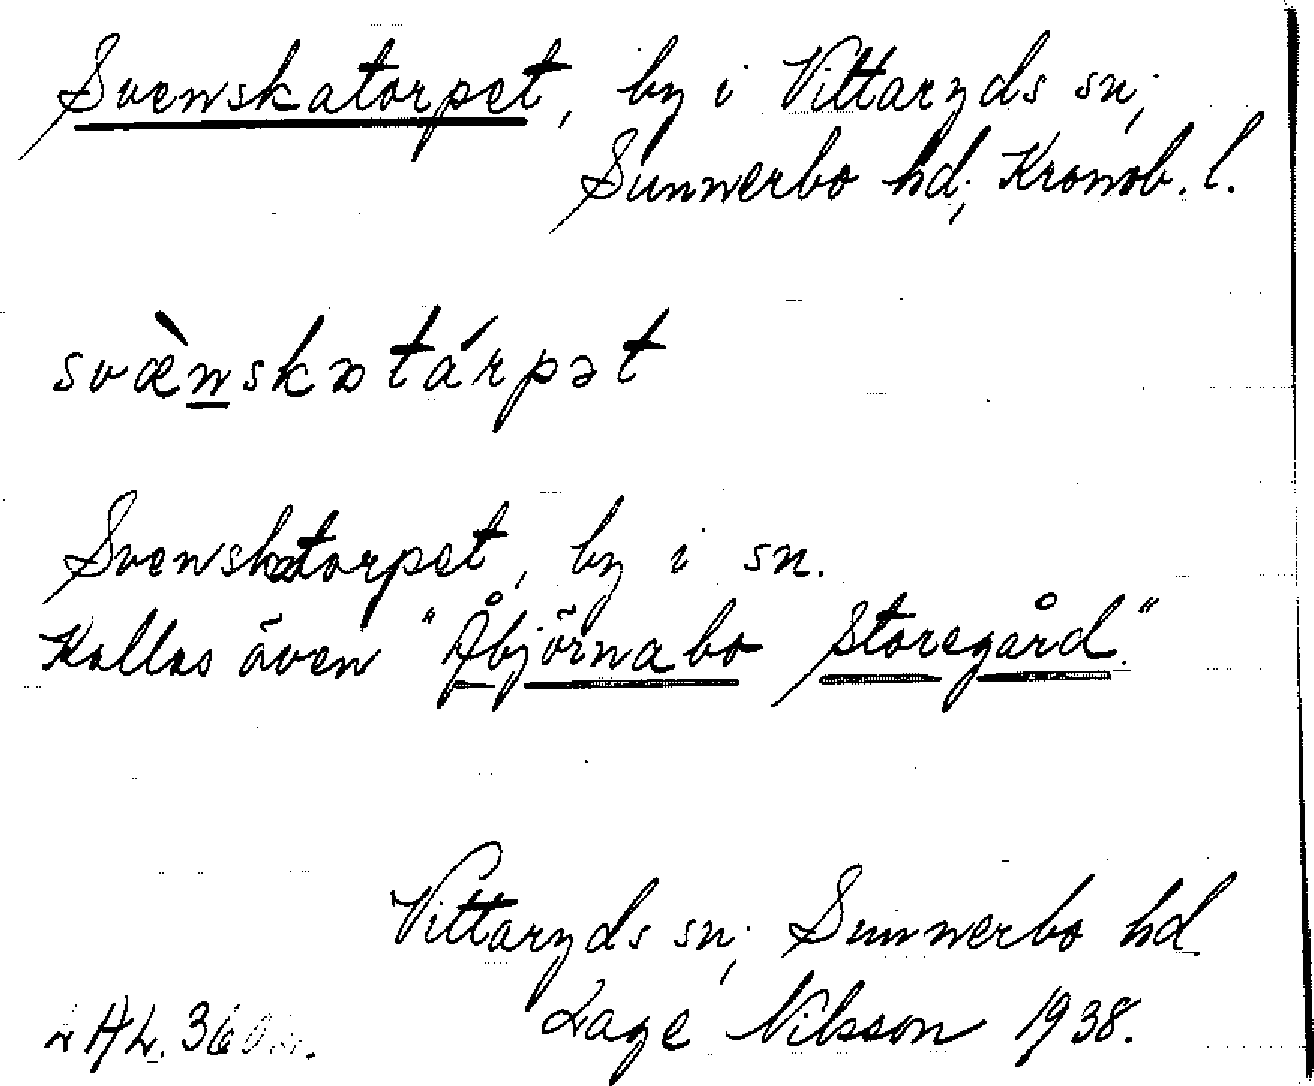 Svenskatorpet, by i Vittaryds sn;
Sunnerbo hd; Kronob. l.
svæ̀nskɒtárpət
Svenskatorpet, by i sn.
Kallas även "Åbjörnabo Storegård."
Vittaryds sn; Sunnerbo hd
Lage Nilsson 1938.